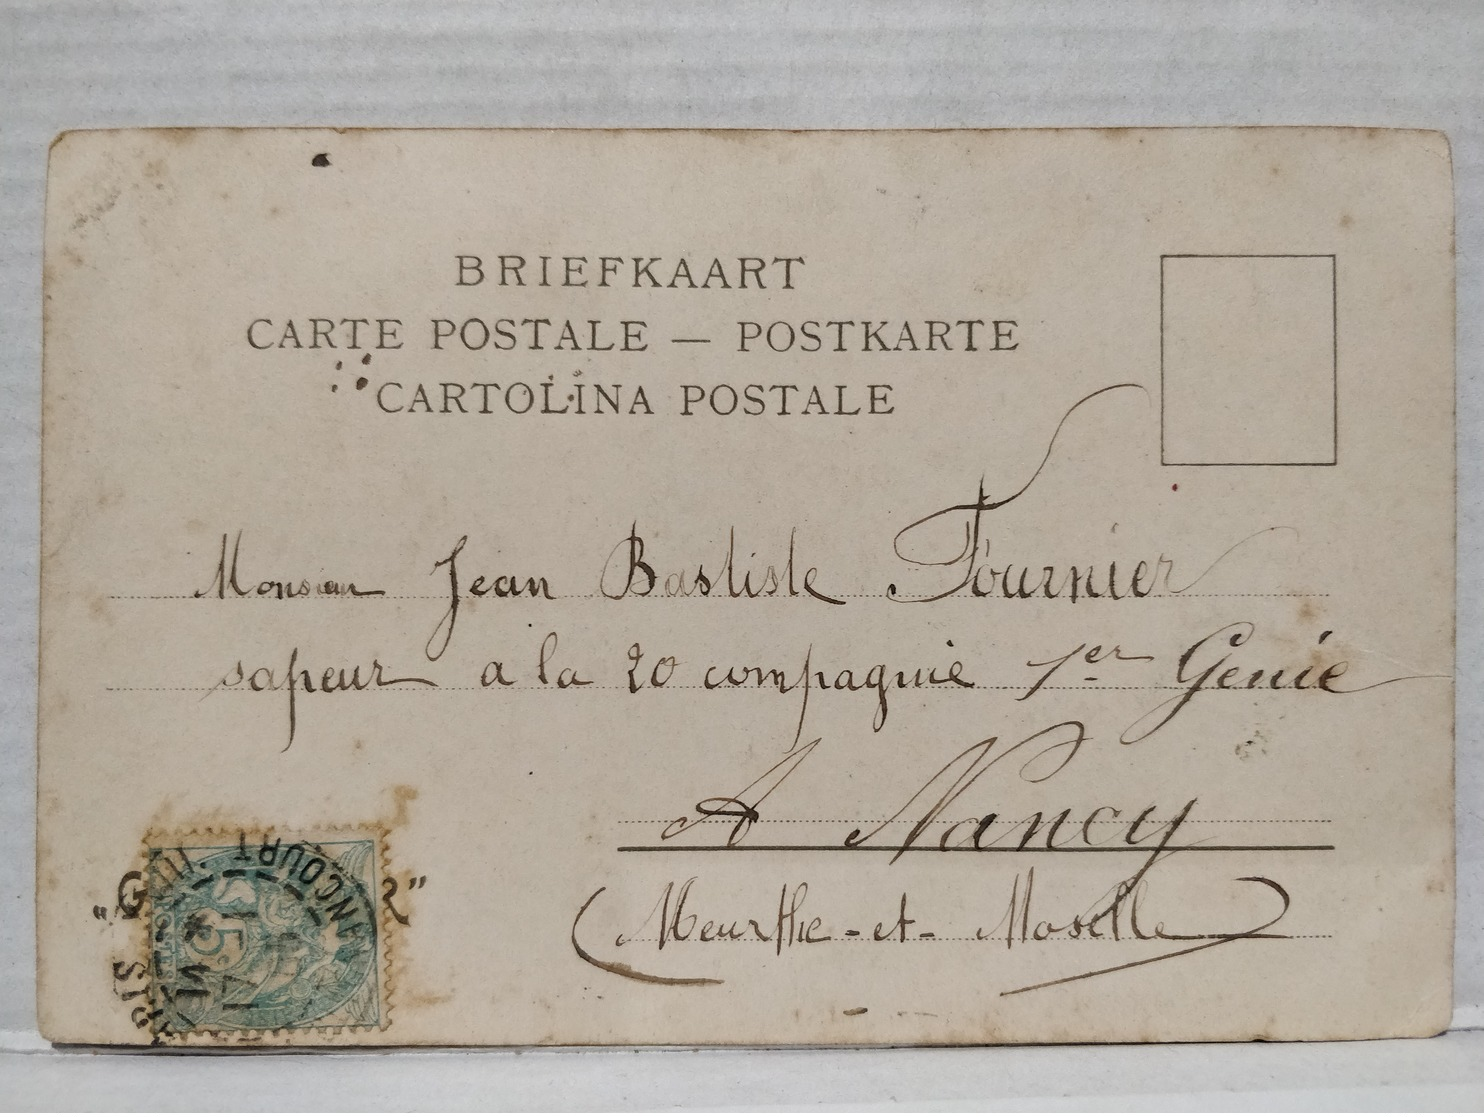 BRIEFKAART
CARTE POSTALE — POSTKARTE
CARTOLINA POSTALE
Monsieur Jean Bastiste Fournier
sapeur a la 20 compagnie 1er Genie
A Nancy
(Meurthe-et-Moselle)
5c
17